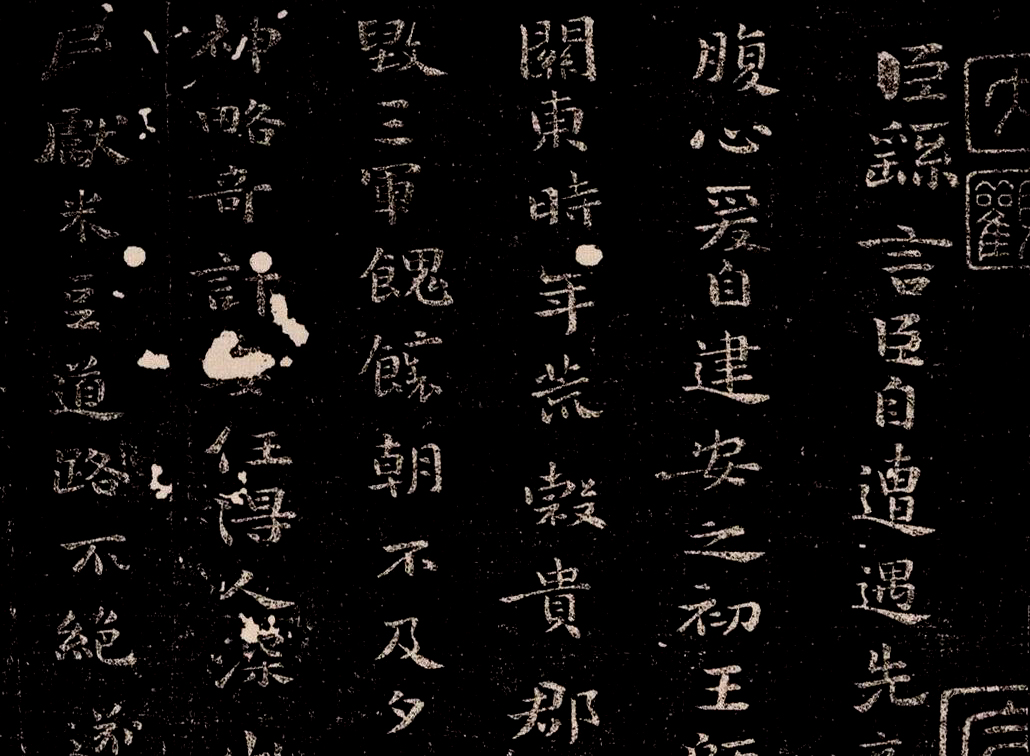 臣繇言臣自遭遇先
腹心爰自建安之初王
關東時年荒穀貴郡
毀三軍餽饟朝不及夕
神略奇計任得人深
民獻米豆道路不絕遂